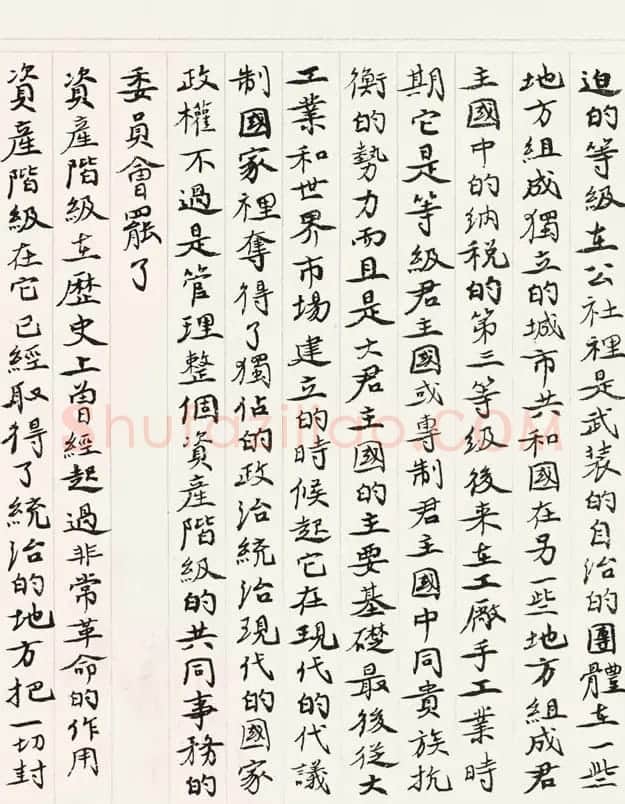 迫的等級在公社裡是武装的自治的團體在一些
地方組成獨立的城市共和國在另一些地方組成君
主國中的纳税的第三等級後来在工廠手工業時
期它是等級君主國或專制君主國中同貴族抗
衡的勢力而且是大君主國的主要基礎最後從大
工業和世界市場建立的時候起它在現代的代議
制國家裡奪得了獨佔的政治統治現代的國家
政權不過是管理整個資產階級的共同事務的
委員會罷了
資產階級在歷史上曾經起過非常革命的作用
資產階級在它已經取得了統治的地方把一切封
Shufaziliao.COM